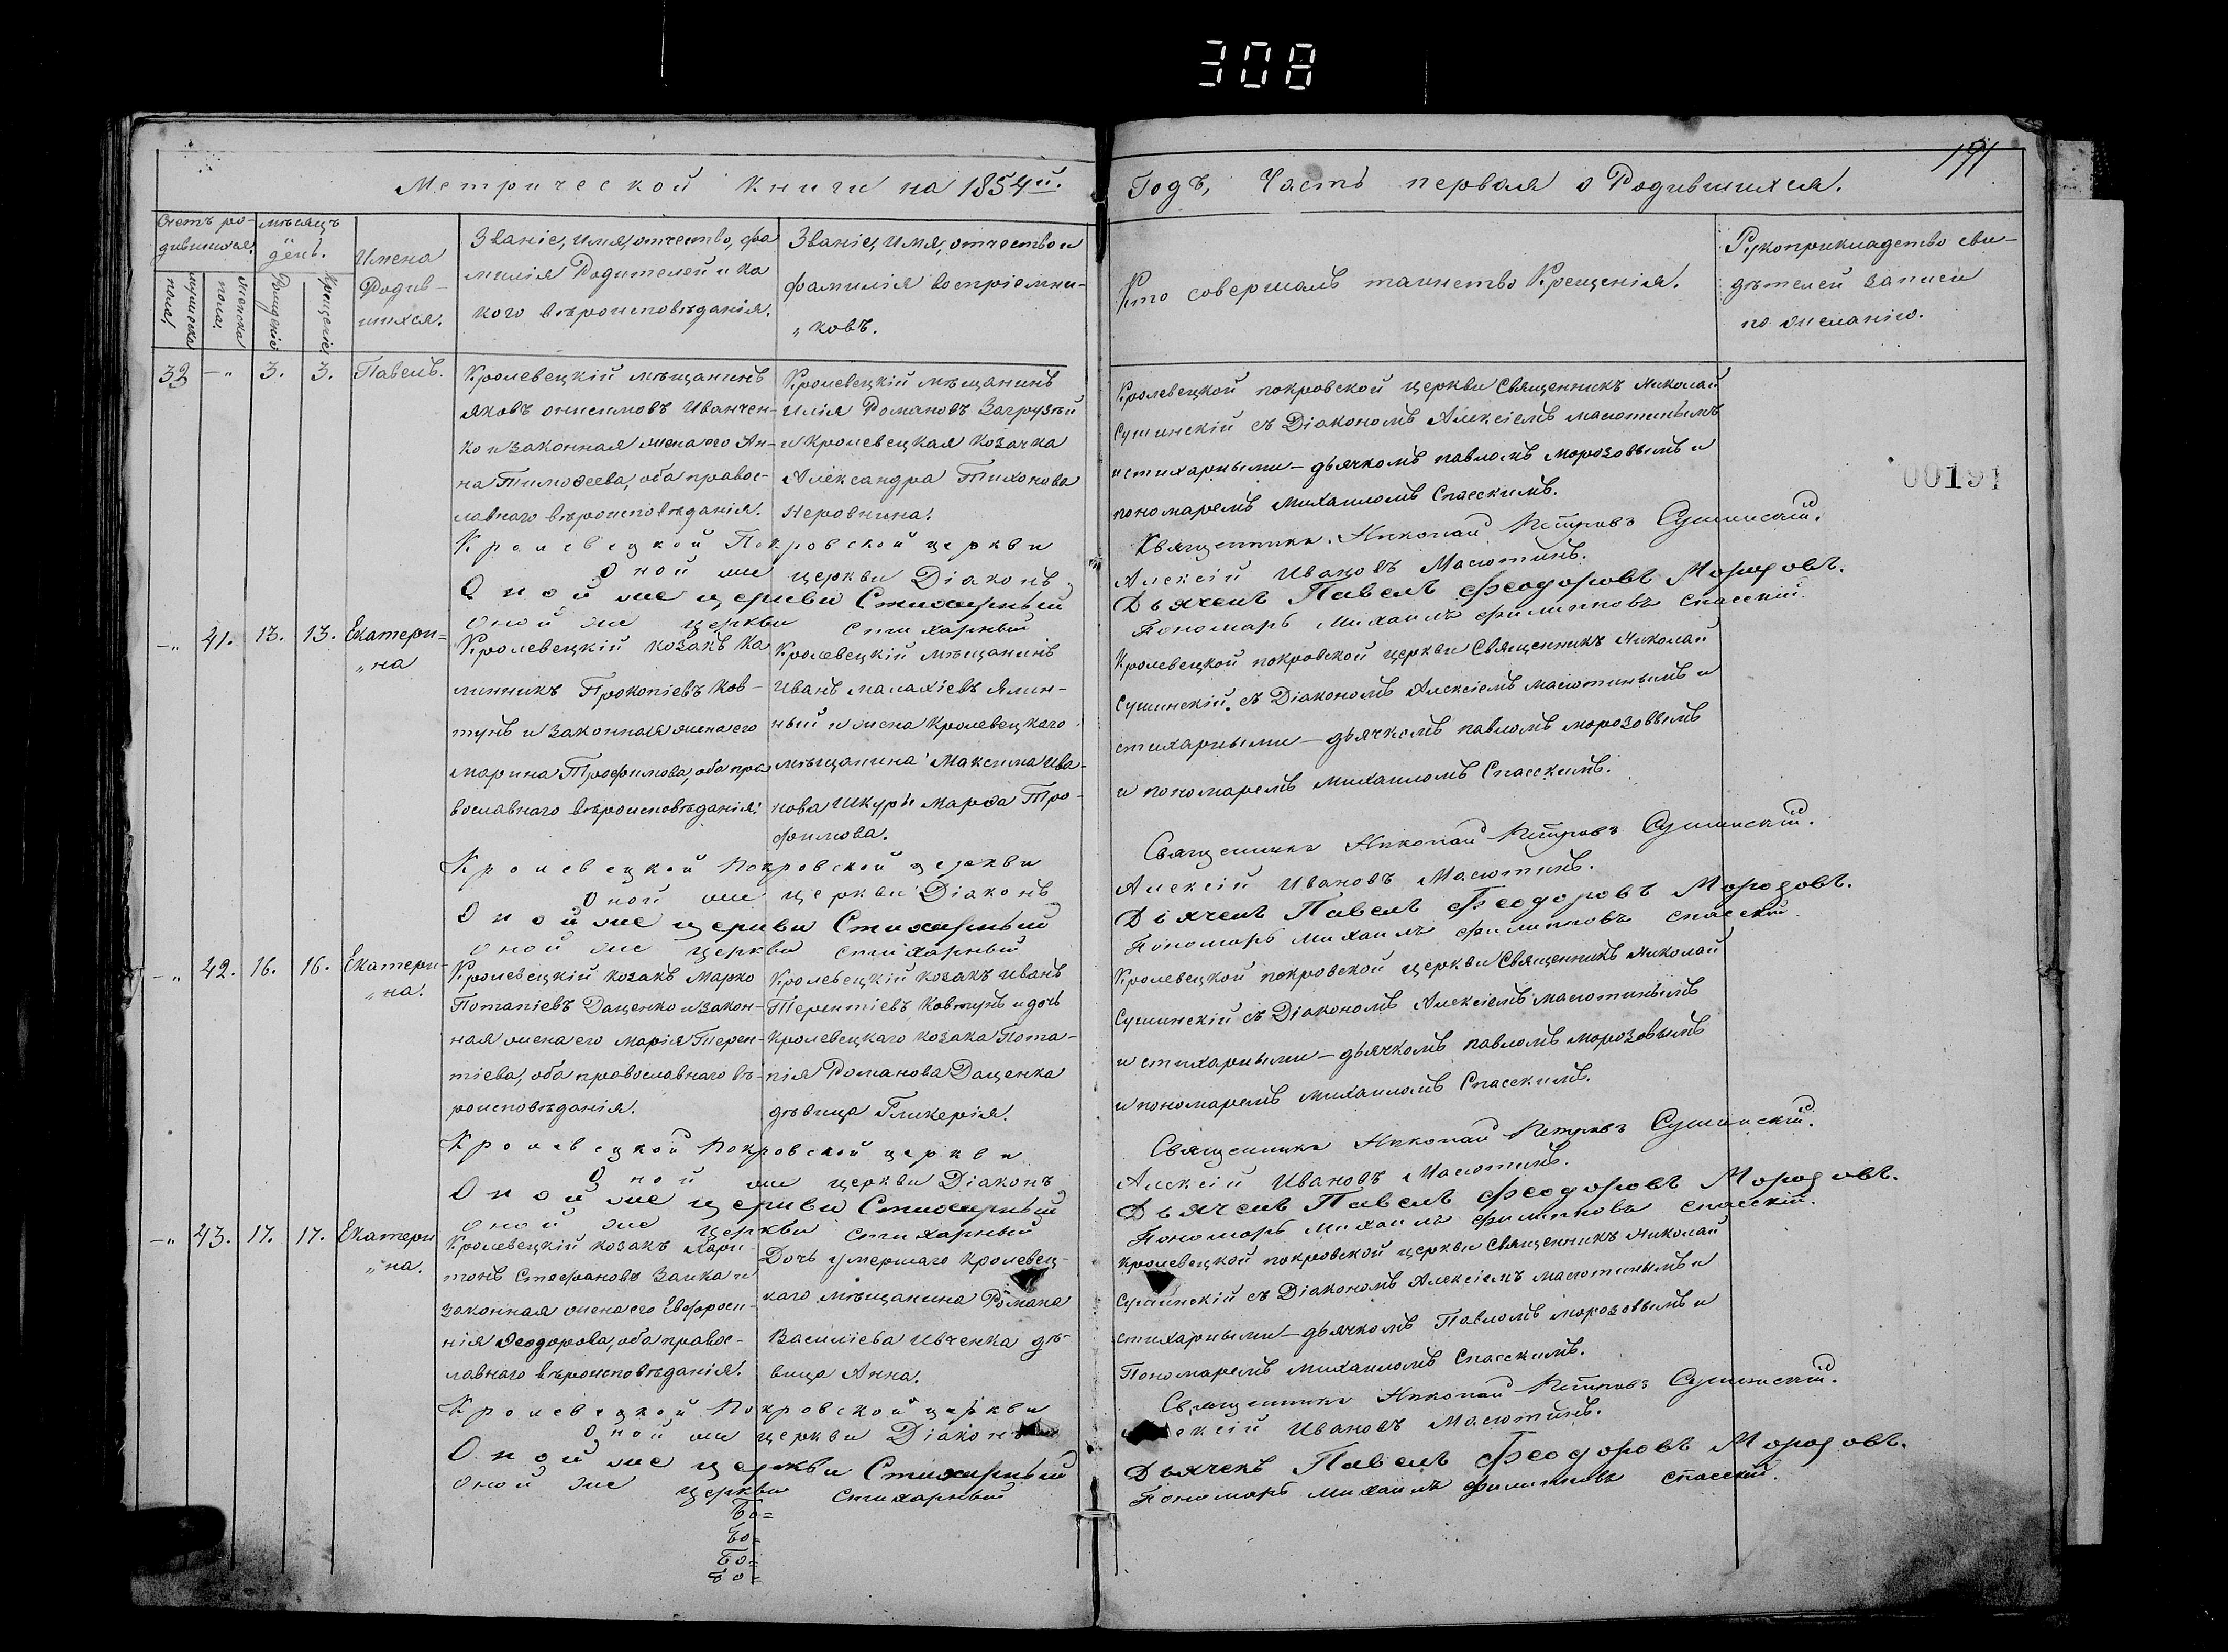 308
191
Метрической Книги на 1854й.
Годъ, Часть первая о Родившихся.
Счетъ ро-
дившихся.
мужеска
пола.
женска
пола.
мѣсяцъ
и
день.
Рожденія
Крещенія
Имена
Родив-
шихся.
Званіе, имя, отчество, фа
милія Родителей и ка
кого вѣроисповѣданія.
Званіе, имя, отчество и
фамилія воспріемни-
„ковъ.
Кто совершалъ таинство Крещенія.
Рукоприкладство сви-
дѣтелей записи
по желанію.
00191
32
-„
3.
3.
Павелъ.
Кролевецкій мѣщанинъ
Яковъ Онисимовъ Иванчен-
ко и законная жена его Ан-
на Тимоѳеева, оба правос-
лавнаго вѣроисповѣданія.
Кролевецкій мѣщанинъ
Илія Романовъ Загрузѣй
и Кролевецкая козачка
Александра Тихонова
Неровнина.
Кролевецкой покровской церкви Священникъ Николай
Сушинскій съ Діакономъ Алексіемъ масютинымъ
и стихарными-дьячкомъ павломъ морозовымъ и
пономаремъ михаиломъ Спасскимъ.
Кролевецкой Покровской церкви
Священникъ Николай Петровъ Сушинскій.
Оной же церкви Діаконъ
Алексій Ивановъ Масютинъ.
Оной же церкви Стихарный
Дьячекъ Павелъ Феодоровъ Морозовъ.
Оной же церкви стихарный
Пономарь михаилъ филипповъ спасскій.
-„
41.
13.
13.
Екатери-
„на
Кролевецкій козакъ Ка
линникъ Прокопіевъ Ков-
тунъ и законная жена его
марина Трофимова, оба пра
вославнаго вѣроисповѣданія.
Кролевецкій мѣщанинъ
Иванъ малахіевъ Ялин-
ный и жена Кролевецкаго
мѣщанина Максима Ива-
нова Шкуры марѳа Тро-
фимова.
Кролевецкой покровской церкви Священникъ Николай
Сушинскій съ Діакономъ Алексіемъ масютинымъ и
стихарными-дьячкомъ павломъ морозовымъ
и пономаремъ михаиломъ Спасскимъ.
Кролевецкой Покровской церкви
Священникъ Николай Петровъ Сушинскій.
Оной же церкви Діаконъ
Алексій Ивановъ Масютинъ.
Оной же церкви Стихарный
Дьячекъ Павелъ Феодоровъ Морозовъ.
Оной же церкви стихарный
Пономарь михаилъ филипповъ спасскій.
-„
42.
16.
16.
Екатери-
„на.
Кролевецкій козакъ Марко
Потапіевъ Даценко и закон-
ная жена его Марія Терен-
тіева, оба православнаго вѣ-
роисповѣданія.
Кролевецкій козакъ Иванъ
Терентіевъ Ковтунъ и дочь
Кролевецкаго козака Пота-
пія Романова Даценка
дѣвица Гликерія.
Кролевецкой покровской церкви Священникъ Николай
Сушинскій съ Діакономъ Алексіемъ масютинымъ
и стихарными-дьячкомъ павломъ морозовымъ
и пономаремъ михаиломъ Спасскимъ.
Кролевецкой Покровской церкви
Священникъ Николай Петровъ Сушинскій.
Оной же церкви Діаконъ
Алексій Ивановъ Масютинъ.
Оной же церкви Стихарный
Дьячекъ Павелъ Феодоровъ Морозовъ.
Оной же церкви стихарный
Пономарь михаилъ филипповъ спасскій.
-„
43.
17.
17.
Екатери
„на.
Кролевецкій козакъ Хари-
тонъ Стефановъ Заика и
законная жена его Евфроси-
нія Ѳеодорова, оба правос-
лавнаго вѣроисповѣданія.
Дочь умершаго Кролевец-
каго мѣщанина Романа
Василіева Ивченка дѣ-
вица Анна.
Кролевецкой покровской церкви Священникъ Николай
Сушинскій съ Діакономъ Алексіемъ масютинымъ и
стихарными-дьячкомъ Павломъ морозовымъ и
Пономаремъ михаиломъ Спасскимъ.
Кролевецкой Покровской церкви
Священникъ Николай Петровъ Сушинскій.
Оной же церкви Діаконъ
Алексій Ивановъ Масютинъ.
Оной же церкви Стихарный
Дьячекъ Павелъ Феодоровъ Морозовъ.
Оной же церкви стихарный
Пономарь михаилъ филипповъ спасскій.